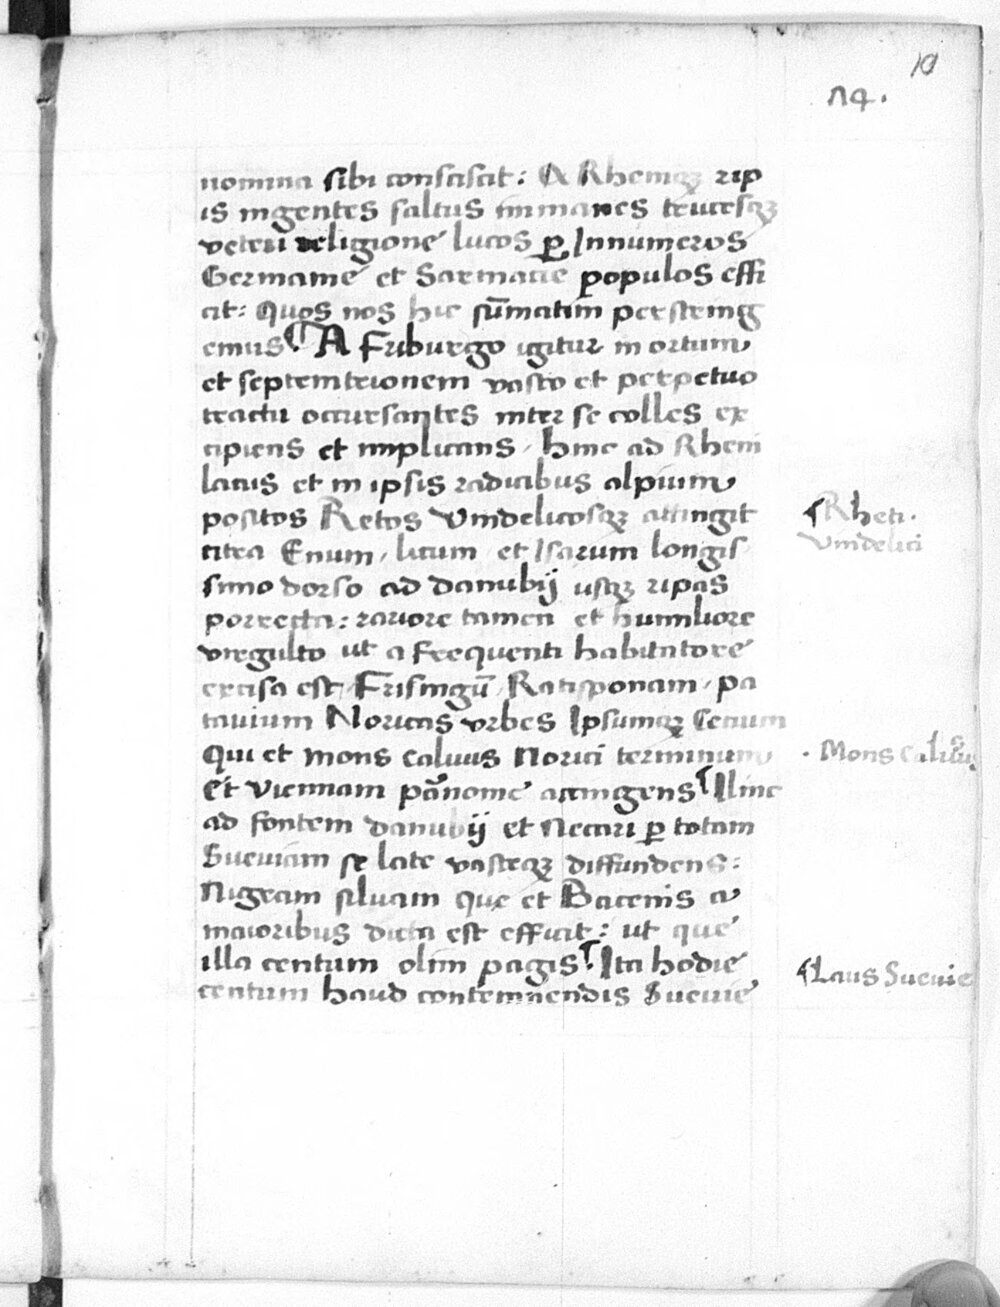 10
14.
nomina sibi consciscit: A Rheniqꝫ rip
is ingentes saltus immanes trucesqꝫ
veteri religione lucos ꝑ Innumeros
Germanie et Sarmatie populos effi
cit: Quos nos hic su̅matim perstring
emus ¶ A Friburgo igitur in ortum
et septemtrionem vasto et perpetuo
tractu occursantes inter se colles ex
cipiens et implicans / hinc ad Rheni
lacus et in ipsis radicibus alpium
positos Retos Vindelicosqꝫ attingit
citra Enum / licum / et Isarum longis
simo dorso ad danubij usqꝫ ripas
porrecta: rariore tamen et humiliore
virgulto ut a frequenti habitatore
excisa est / Frisingu̅ / Ratisponam / pa
tavium Noricas vrbes Ipsumqꝫ Cecium
Qui et mons calvus Norici terminum
Et Viennam pa̅nonie attingens ¶ Hinc
ad fontem danubij et Neccari ꝑ totam
Sueviam se late vasteqꝫ diffundens:
Nigram silvam que et Bacenis a
maioribus dicta est efficit: ut que
illa centum olim pagis ¶ Ita hodie
centum haud contemnendis Suevie
¶ Rheti.
Vindelici
· Mons Calvus
¶ Laus Suevie